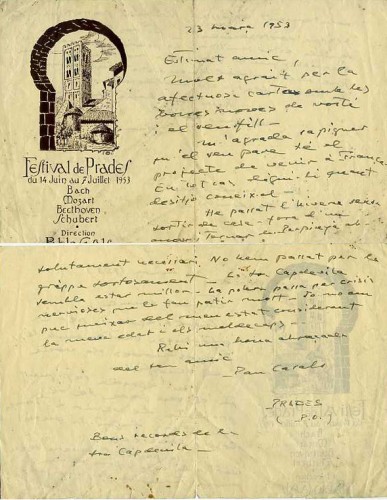 Festival de Prades
du 14 Juin au 7 Juillet 1953
Bach
Mozart
Beethoven
Schubert
Direction
23 març 1953
Estimat amic,
Molt agraït per la
afectuosa carta amb les
bones noves de vostè
i el seu fill
M'agrada
que el seu pare té el
projecte de venir a França
En tot cas digui-li quant
desitjo coneixe'l
He passat l'hivern sense
sortir de casa fora d'un
a Perpinyà
absolutament necessari. No hem passat per la
grippe sortosament. La Sra Capdevila
sembla estar millor. La pobra passa per crisis
nervioses que la fan patir molt. Jo no em
puc queixar del meu estat considerant
la meva edat i els maldecaps
Rebi una bona abraçada
del seu amic
Pau Casals
PRADES
(P.O.)
Bons records de la
Sra Capdevila